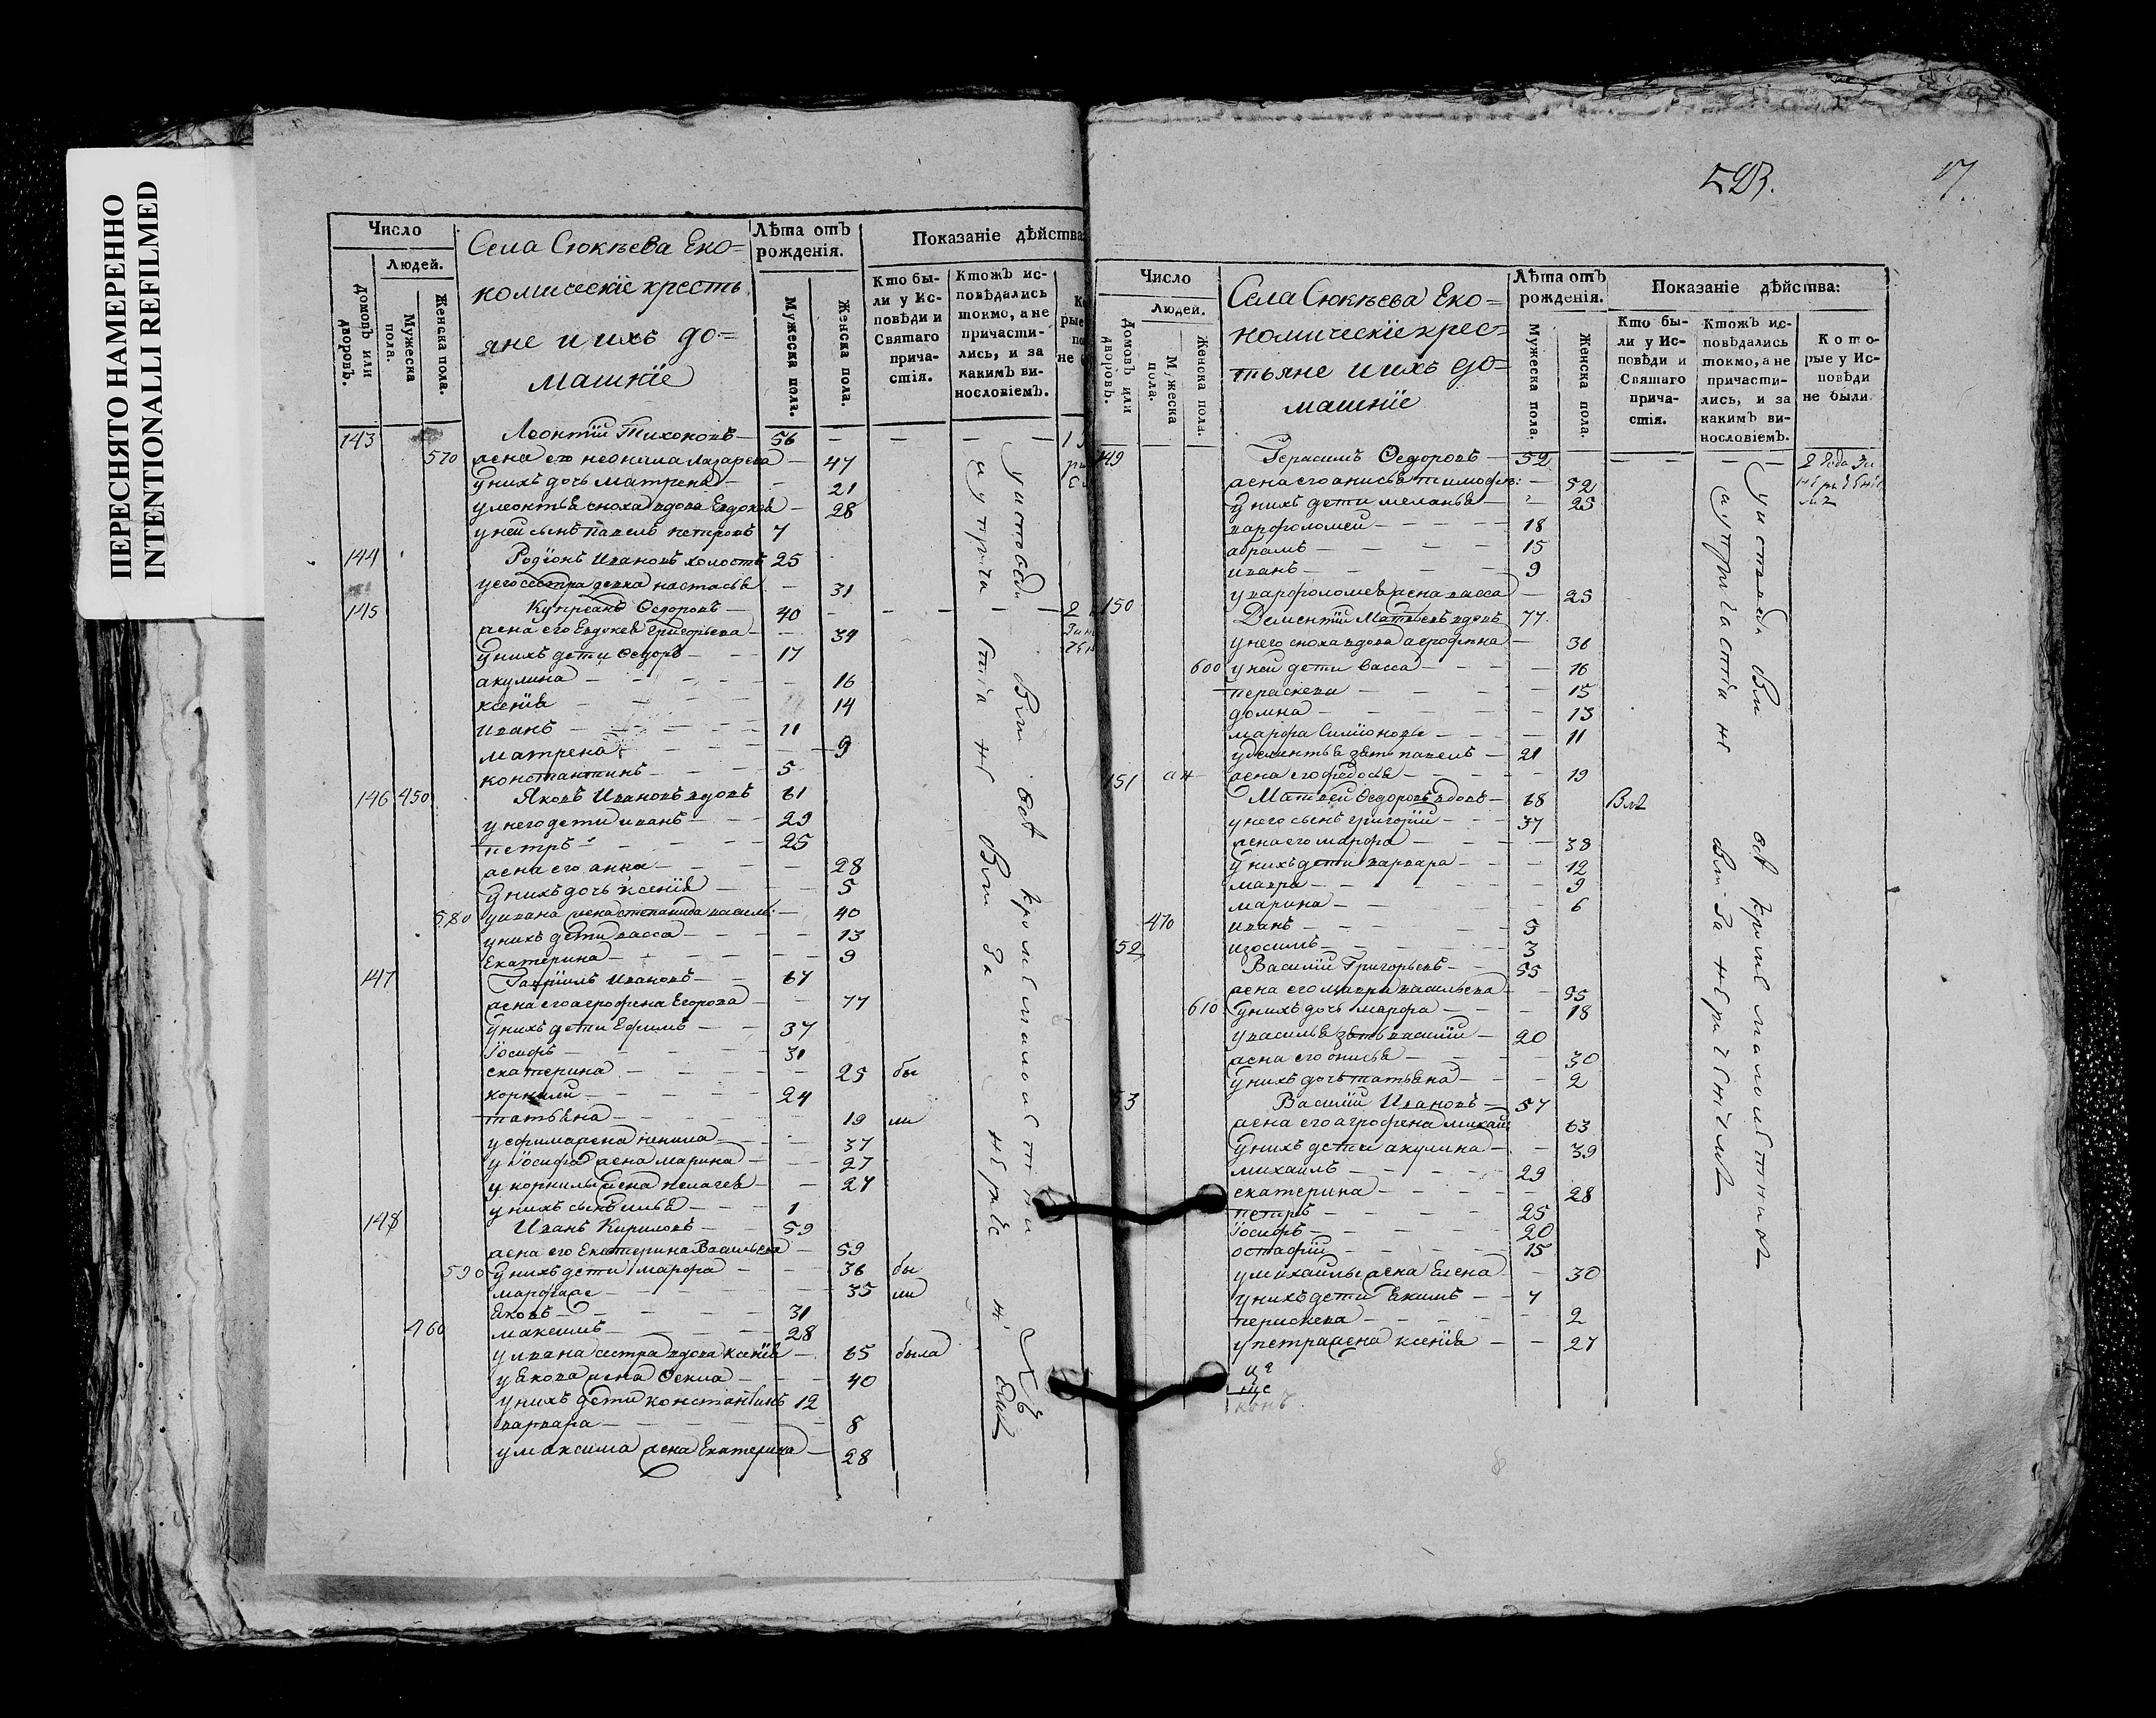 ПЕРЕСНЯТО НАМЕРЕННО
INTENTIONALLI REFILMED
Число
Людей.
Домовъ или дворовъ.
Мужеска пола.
Женска пола.
Села Сюкѣева Еко=
номическіе кресть
яне и ихъ до=
машніе
Лѣта отъ
рожденія.
Мужеска пола.
Женска пола.
Показаніе дѣйства
Кто бы-
ли у Ис-
повѣди и
Святаго
прича-
стія.
Ктожъ ис-
повѣдались
токмо, а не
причасти-
лись, и за
какимъ ви-
нословіемъ.
143 Леонтій Тихоновъ 56
570 жена его неонила Лазарева 47
у нихъ дочь Матрена 21
у леонтья сноха вдова Евдокея 28
у ней сынъ Павелъ петровъ 7
144 Родіонъ Ивановъ холостъ 25
у его сестра девка настасья 31
145 Купреанъ Ѳедоровъ 40
жена его Евдокея Григорьева 39
у нихъ дети Ѳедоръ 17
акулина 16
ксенія 14
иванъ 11
матрена 9
константинъ 5
146 450 Яковъ Ивановъ вдовъ 61
у него дети иванъ 29
петръ 25
жена его анна 28
у нихъ дочь ксенія 5
580 у ивана жена степанида василь: 40
у нихъ дети васса 13
Екатерина 9
147 Гаврилъ Ивановъ 67
жена его агрофена Егорова 77
у нихъ дети Ефимъ 37
Іосифъ 31
екатерина 25 бы
корнили 24
татьяна 19 ли
у ефима жена ненила 37
у Іосифа жена марина 27
у корнилы жена пелагея 27
у нихъ сынъ илья 1
148 Иванъ Кириловъ 59
жена его Екатерина Васильева 59
590 у нихъ дети марфа 36 бы
35 ли
Яковъ 31
460 максимъ 28
у ивана сестра вдова ксенія 65 была
у якова жена 40
у нихъ дети константинъ 12
варвара 8
у максима жена Екатерина 28
у исповеди вси все кроме малолетни
а у прича стія не вси за
17
Число
Людей.
Домовъ или дворовъ.
Мужеска пола.
Женска пола.
Села Сюкѣева Еко=
номическіе крес=
тьяне и ихъ до=
машніе
Лѣта отъ
рожденія.
Мужеска пола.
Женска пола.
Показаніе дѣйства:
Кто бы-
ли у Ис-
повѣди и
Святаго
прича-
стія.
Ктожъ ис-
повѣдались
токмо, а не
причасти-
лись, и за
какимъ ви-
нословіемъ.
Кото-
рые у Ис-
повѣди
не были
149 Герасимъ Ѳедоровъ 52 2 года за
жена его анисья тимофе: 52
у нихъ дети меланья 25
варфоломеи 18
абрамъ 15
иванъ 9
у варфоломея жена васса 25
150 Дементій Матвеевъ вдовъ 77
у него сноха вдова агрофена 36
600 у ней дети васса 16
пераскева 15
домна 13
марфа Симіоновы 11
у дементья зять павелъ 21
151 жена его федосья 19
Матвей Ѳедоровъ вдовъ 68
у него сынъ григорій 37
жена его марфа 38
у нихъ дети варвара 12
мавра 9
марина 6
470 иванъ 5
152 изосимъ 3
Василій Григорьевъ 55
жена его мавра васильева 55
610 у нихъ дочь марфа 18
у василья зять василій 20
жена его онисья 30
у нихъ дочь татьяна 2
53 Василій Ивановъ 57
жена его агрофена михаи 63
у нихъ дети акулина 39
михаилъ 29
екатерина 28
петръ 25
Іосифъ 20
остафій 15
у михаилы жена Елена 30
у нихъ дети Якимъ 7
перискева 2
у петра жена ксенія 27
у исповеди вси все кроме малолетнихъ
а у причастія не вси за нерачениемъ